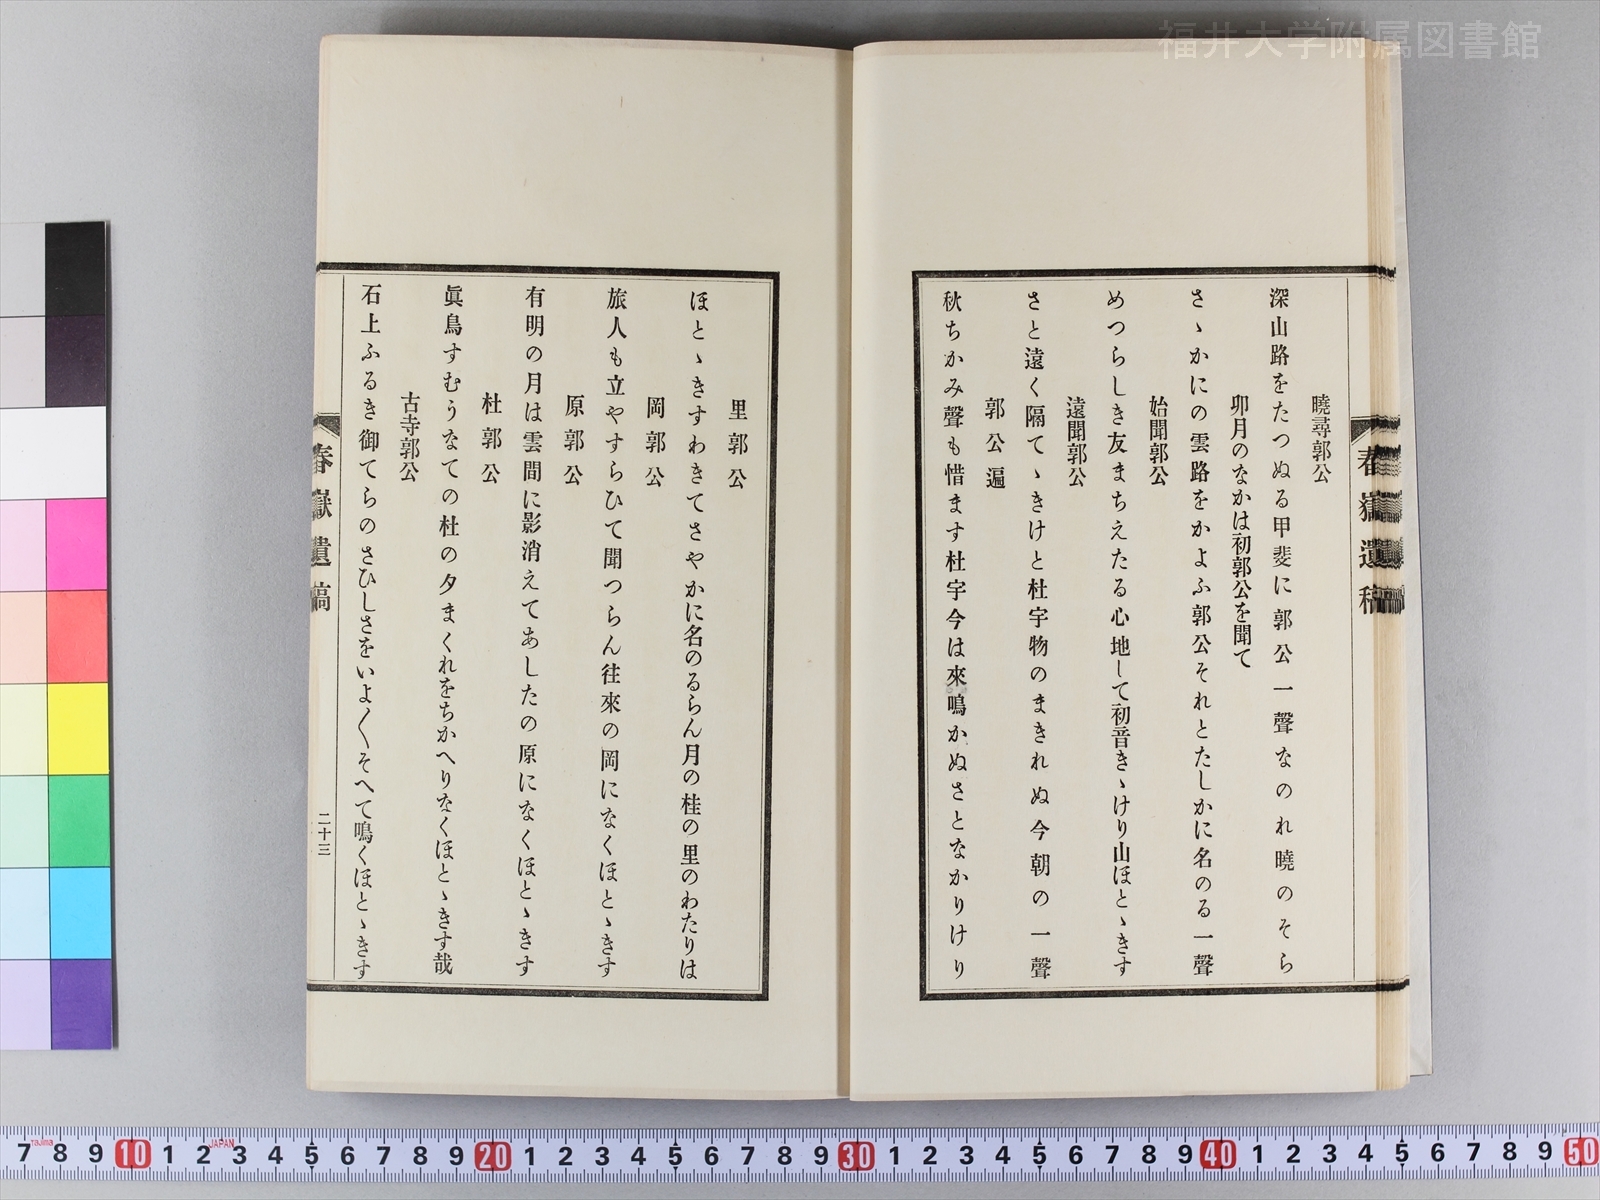 福井大学附属図書館
曉尋郭公
深山路をたつぬる甲斐に郭公一聲なのれ曉のそら
卯月のなかは初郭公を聞て
さゝかにの雲路をかよふ郭公それとたしかに名のる一聲
始聞郭公
めつらしき友まちえたる心地して初音きゝけり山ほとゝきす
遠聞郭公
さと遠く隔てゝきけと杜宇物のまきれぬ今朝の一聲
郭公遍
秋ちかみ聲も惜ます杜宇今は來鳴かぬさとなかりけり
春嶽遺稿
里郭公
ほとゝきすわきてさやかに名のるらん月の桂の里のわたりは
岡郭公
旅人も立やすらひて聞つらん往來の岡になくほとゝきす
原郭公
有明の月は雲間に影消えてあしたの原になくほとゝきす
杜郭公
眞鳥すむうなての杜の夕まくれをちかへりなくほとゝきす哉
古寺郭公
石上ふるき御てらのさひしさをいよ〱そへて鳴くほとゝきす
春嶽遺稿
二十三
7 8 9 10 1 2 3 4 5 6 7 8 9 20 1 2 3 4 5 6 7 8 9 30 1 2 3 4 5 6 7 8 9 40 1 2 3 4 5 6 7 8 9 50
Tajima
JAPAN